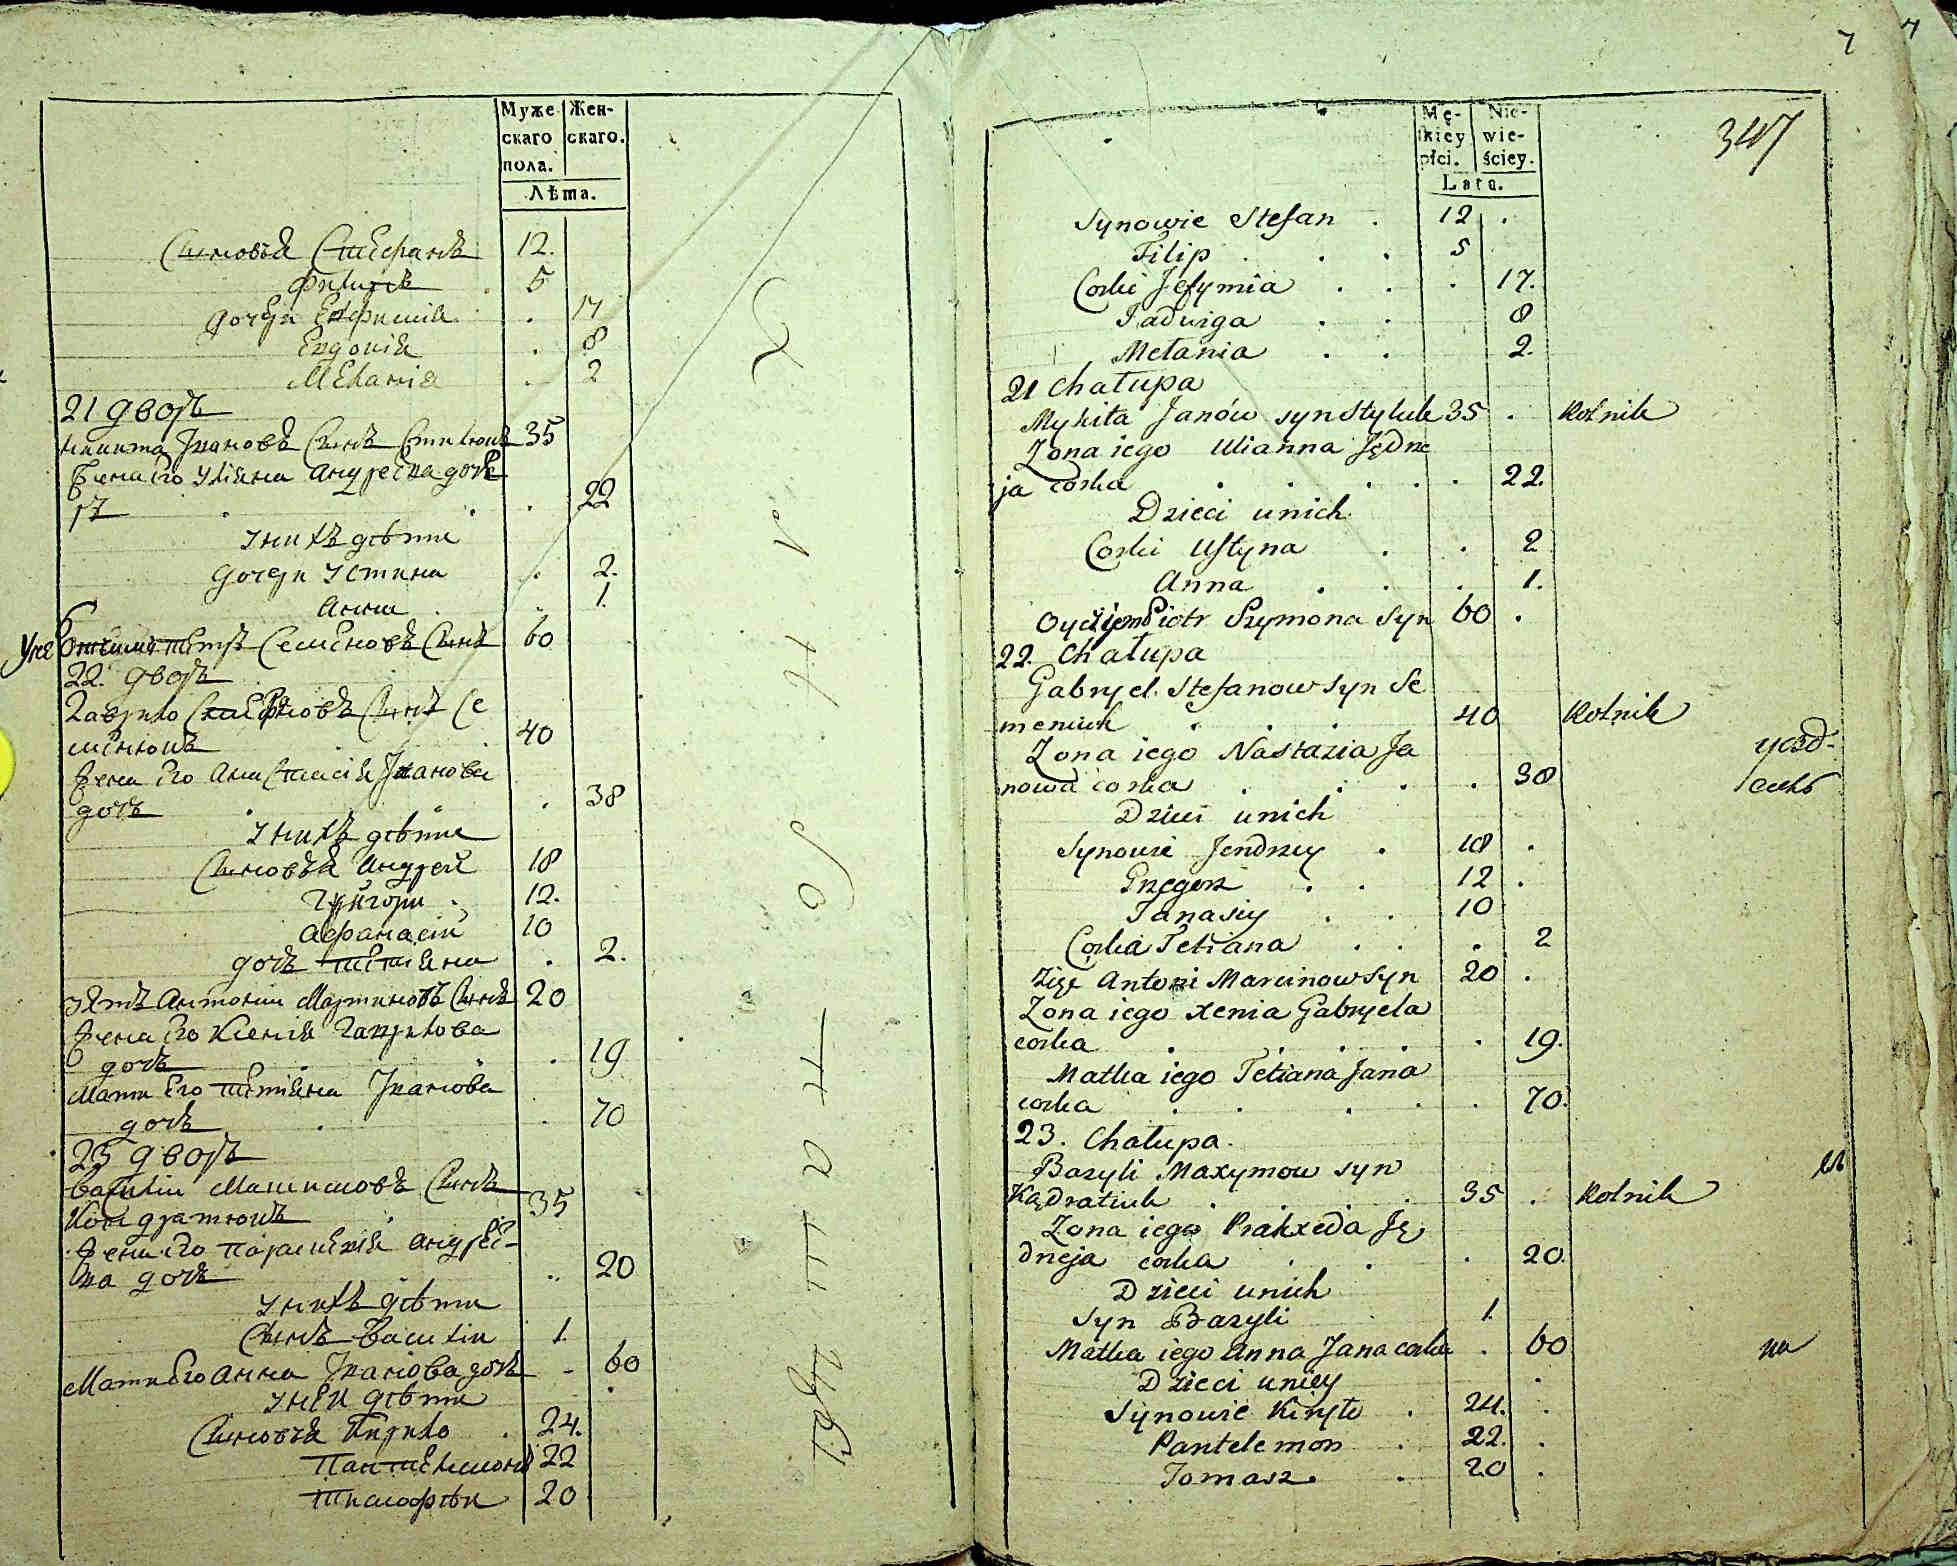 Муже
скаго
пола.
Жен-
скаго.
Лѣта.
Сыновья Стефанъ 12.
Филипъ 5
дочери Евфимія 17
Евдокія 8
Меланія 2
21 дворъ
Никита Ивановъ Сынъ Стилюкъ 35
Жена Его Уліяна Андреева доче
рь 22
У нихъ дѣти
дочери Устина 2.
Анна 1.
Петръ Семеновъ Сынъ 60
22. дворъ
Гаврило Стефановъ Сынъ Се
менюкъ 40
Жена Его Анастасія Иванова
дочь 38
У нихъ дѣти
Сыновья Андрей 18
Григори 12.
Афанасій 10
дочь Тетіяна 2.
Зять Антоній Мартиновъ Сынъ 20
Жена Его Ксенія Гаврилова
дочь 19
Мати Его Тетіяна Иванова
дочь 70
23 дворъ
Василій Максимовъ Сынъ
Кондратюкъ 35
Жена Его Параскевія Андрее-
ва дочь 20
У нихъ дѣти
Сынъ Василій 1
Мати Его Анна Иванова дочь 60
У ней дѣти
Сыновья Кирило 24.
Пантелимонъ 22
Тимофѣй 20
7
7
347
Mę-
skiey
płci.
Nie-
wie-
ściey.
Lata.
Synowie Stefan 12
Filip 5
Corki Jefymia 17.
Jadwiga 8
Melania 2.
21 Chałupa
Mykita Janów syn Styluk 35 Rolnik
Zona iego Ulianna Jędrze
ja corka 22.
Dzieci unich
Corki Ustyna 2
Anna 1.
Oyczym Piotr Szymona Syn 60
22. Chałupa
Gabryel Stefanow Syn Se
meniuk 40 Rolnik
Zona iego Nastazia Ja
nowa corka 38
Dzieci unich
Synowie Jendrzey 18
Grzegorz 12
Tanasiy 10
Corka Tetiana 2
Zięć Antoni Marcinow Syn 20
Zona iego Xenia Gabryela
corka 19.
Matka iego Tetiana Jana
corka 70.
23. Chalupa.
Bazyli Maxymow syn
Kądratiuk 35 Rolnik
Zona iego Prakxeda Ję
drzeja corka 20.
Dzieci unich
Syn Bazyli 1.
Matka iego Anna Jana corka 60
Dzieci uniey
Synowie Kiryło 24.
Pantelemon 22.
Tomasz 20